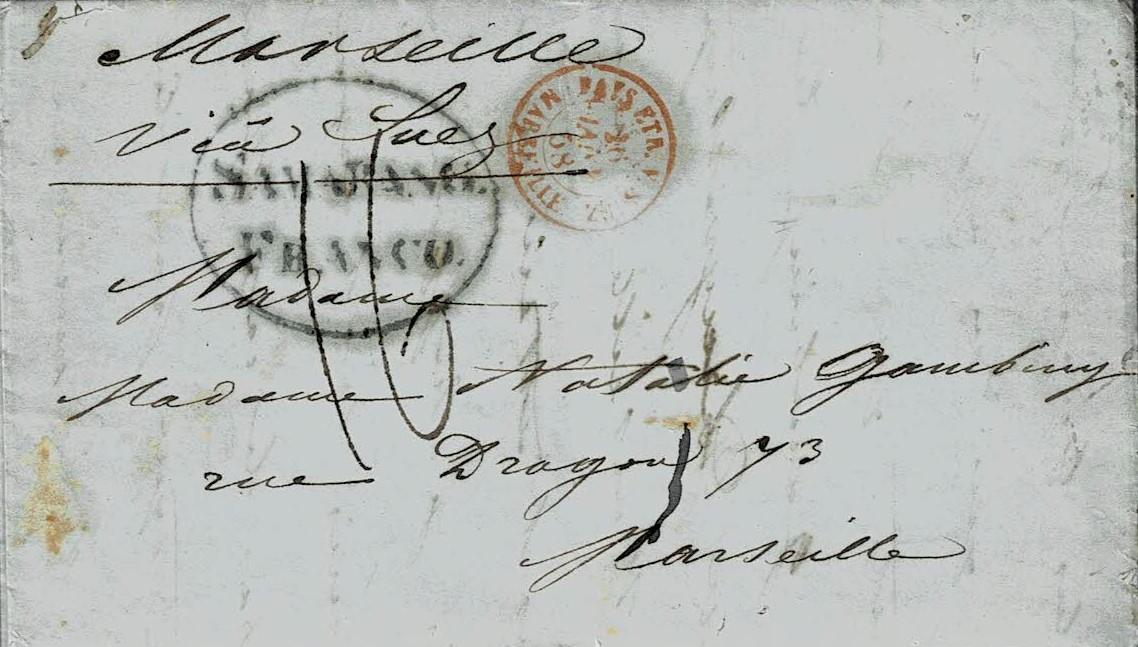 Marseille
via Suez
PAYS ETR. V. SUEZ MARSEILLE
58
FRANCO.
16
Madame
Madame Natalie Gambiny
rue Dragon 73
Marseille